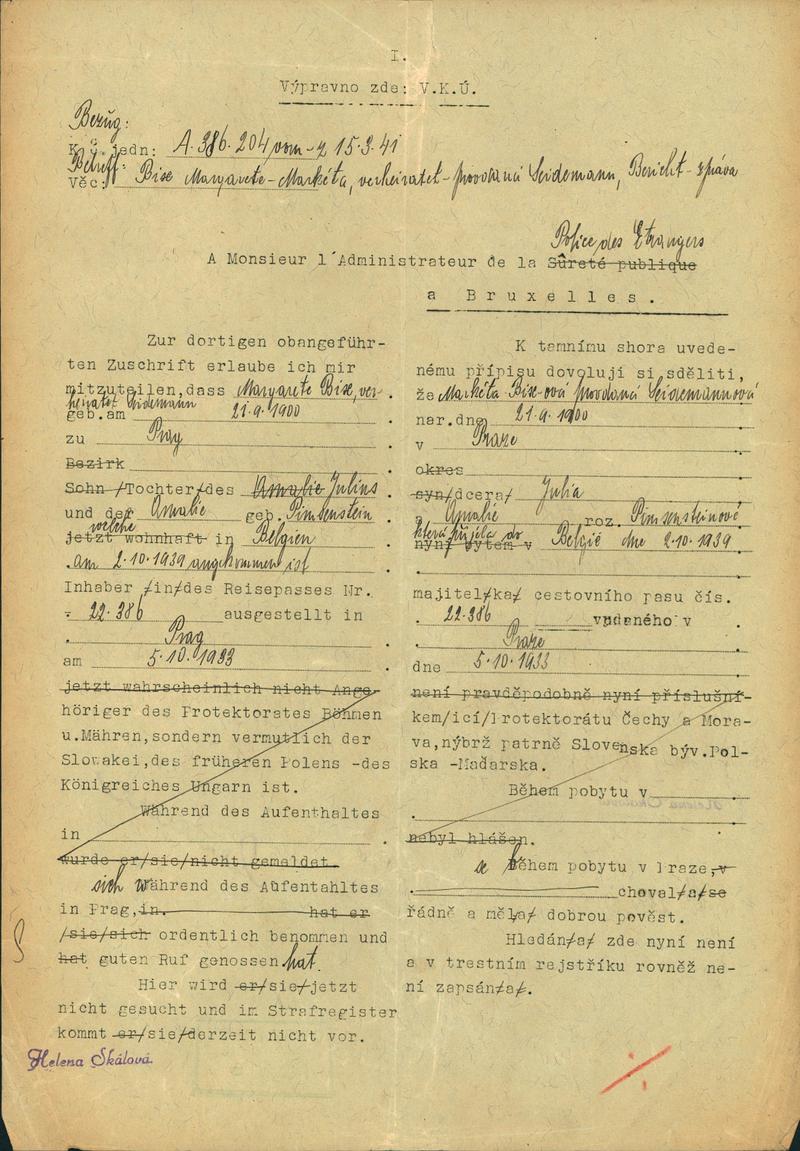 I.
Výpravno zde: V.K.Ú.
Bezug:
K č.jedn: A.386.204 vom - z 15.3.41
Betreff:
Věc: Bise Margarete - Markéta, verheiratet - provdaná Seidemann, Bericht - zpráva
Police des Etrangers
A Monsieur l'Administrateur de la Sûreté publique
a Bruxelles.
Zur dortigen obangeführ-
ten Zuschrift erlaube ich mir
mitzuteilen, dass Margarete Bise, ver-
heiratet Seidemann
geb. am 21.9.1900
zu Prag
Bezirk
Sohn /Tochter/des Amalie Julius
und der Amalie geb. Pimsenstein
welche
jetzt wohnhaft in Belgien
am 2.10.1939 angekommen ist
Inhaber /in/des Reisepasses Nr.
22.386 ausgestellt in
Prag
am 5.10.1933
jetzt wahrscheinlich nicht Ange-
höriger des Protektorates Böhmen
u.Mähren,sondern vermutlich der
Slowakei,des früheren Polens -des
Königreiches Ungarn ist.
Während des Aufenthaltes
in
wurde er/sie/nicht gemeldet.
sich Während des Aufentahltes
in Prag,in. hat er
/sie/sich ordentlich benommen und
hat guten Ruf genossen hat.
Hier wird er/sie/jetzt
nicht gesucht und im Strafregister
kommt er/sie/derzeit nicht vor.
Helena Skálová
K tamnímu shora uvede-
nému přípisu dovoluji si sděliti,
že Markéta Bise-ová provdaná Seidemannová
nar.dne 21.9.1900
v Praze
okres
syn/dcera/ Julia
a Amalie roz. Pimsensteinové
která přijela do
nyní bytem v Belgie dne 2.10.1939
majitel/ka/ cestovního pasu čís.
22.386 vydaného v
Praze
dne 5.10.1933
není pravděpodobně nyní příslušní-
kem/icí/Protektorátu Čechy a Mora-
va,nýbrž patrně Slovenska býv.Pol-
ska -Maďarska.
Během pobytu v
Helena Skálová
nebyl hlášen.
se Během pobytu v Praze,v
choval/a/se
řádně a měla/ dobrou pověst.
Hledán/a/ zde nyní není
a v trestním rejstříku rovněž ne-
ní zapsán/a/.